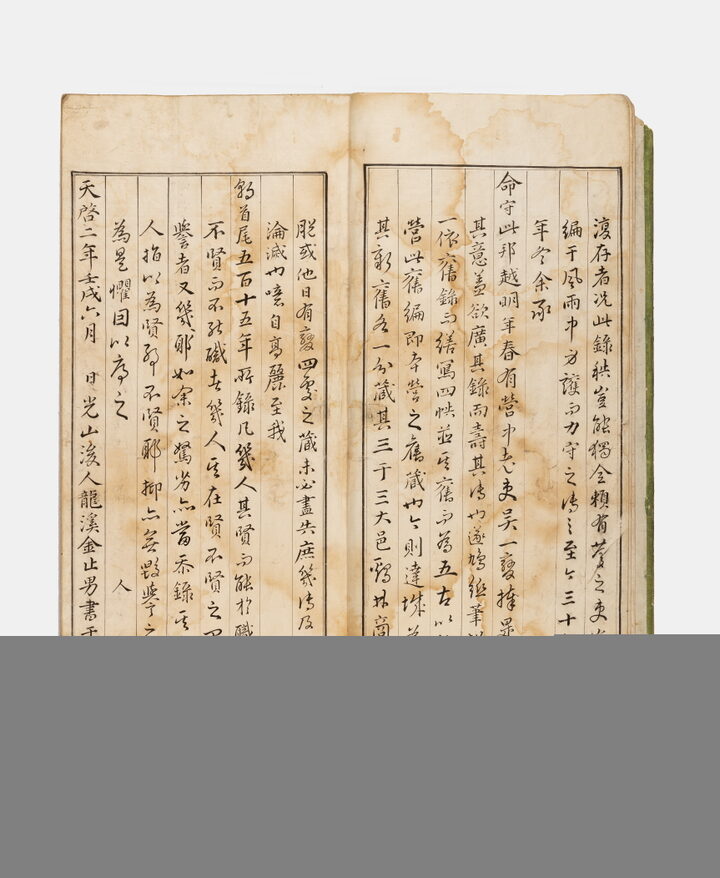 復存者況此錄秩豈能獨全賴有營之吏
編于風雨中方護而力守之傳之至今三十
年冬余承
命守此邦越明年春有營中老吏吳一夔捧
其意蓋欲廣其錄而壽其傳也遂鳩紙筆
一依舊錄而繕寫四帙並其舊而為五古以
營此舊編即本營之舊藏也今則達城
其新舊各一分藏其三于三大邑
脫或他日有變四處之藏未必盡失庶幾傳及
淪滅也噫自高麗至我
朝首尾五百十五年所錄凡幾人其賢而能於職
不賢而不能職者幾人其在賢不賢之
譽者又幾耶如余之駑劣亦當忝錄其
人指以為賢耶不賢耶抑亦無毀譽之
人
為是懼因以序之
天啓二年壬戌六月 日光山後人龍溪金止男書于